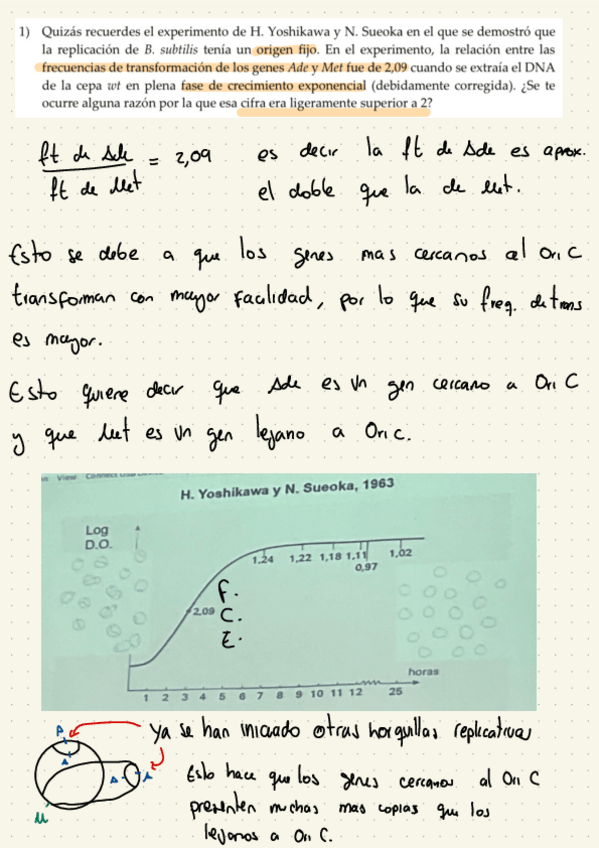 1) Quizás recuerdes el experimento de H. Yoshikawa y N. Sueoka en el que se demostró que
la replicación de B. subtilis tenía un origen fijo. En el experimento, la relación entre las
frecuencias de transformación de los genes Ade y Met fue de 2,09 cuando se extraía el DNA
de la cepa wt en plena fase de crecimiento exponencial (debidamente corregida). ¿Se te
ocurre alguna razón por la que esa cifra era ligeramente superior a 2?
ft de Ade = 2,09 es decir la ft de Ade es aprox.
ft de Met el doble que la de Met.
Esto se debe a que los genes mas cercanos al Ori C
transforman con mayor facilidad, por lo que su freq. de trans
es mayor.
Esto quiere decir que Ade es un gen cercano a Ori C
y que Met es un gen lejano a Ori C.
View
H. Yoshikawa y N. Sueoka, 1963
Log
D.O.
1,24 1,22 1,18 1,11 1,02
0,97
F.
2,09 C.
E.
horas
1 2 3 4 5 6 7 8 9 10 11 12 25
A Ya se han iniciado otras horquillas replicativas
A
A A Esto hace que los genes cercanos al Ori C
presenten muchas mas copias que los
M
lejanos a Ori C.